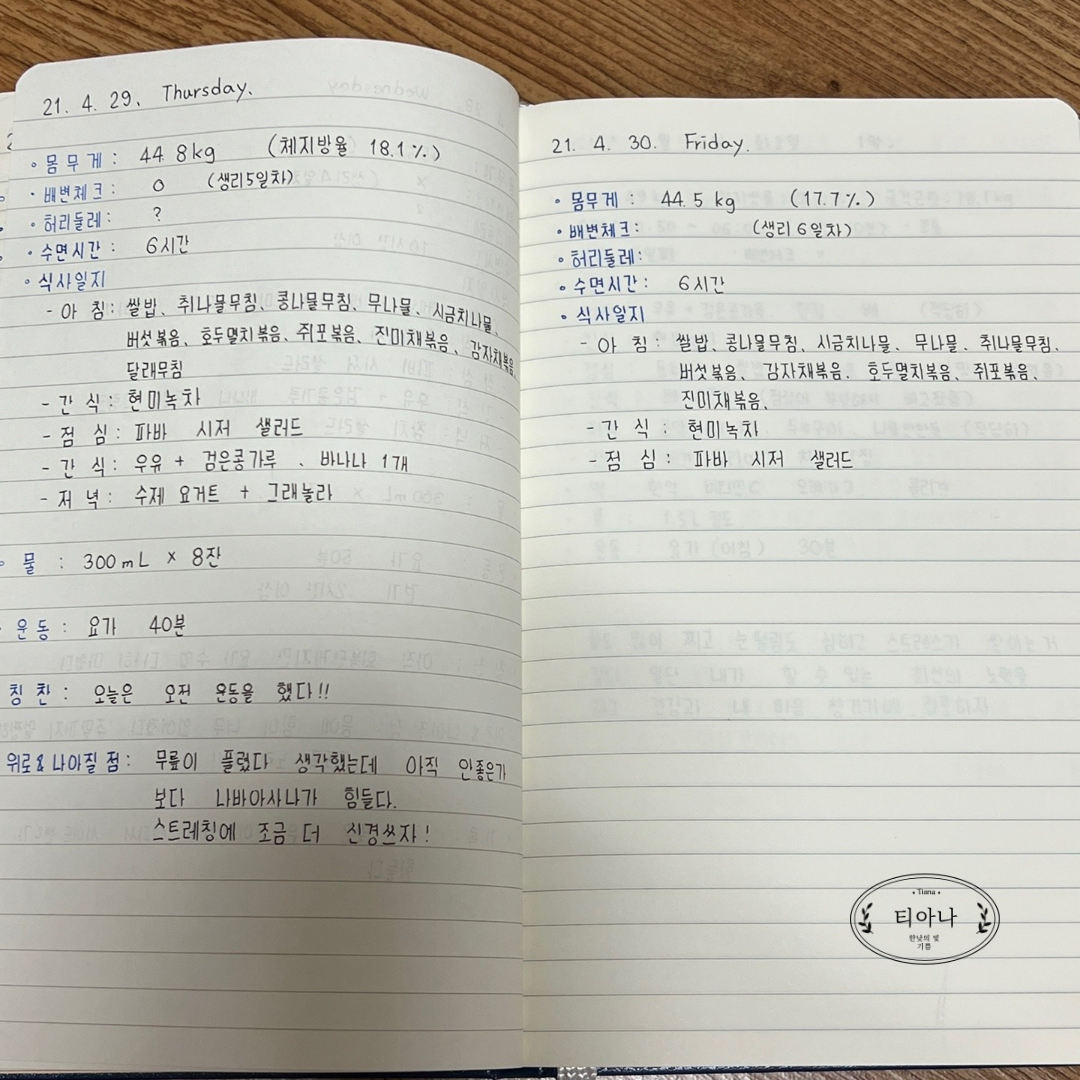 21. 4. 29. Thursday.
• 몸무게 : 44.8kg (체지방율 18.1%)
• 배변체크 : O (생리5일차)
• 허리둘레 : ?
• 수면시간 : 6시간
• 식사일지
- 아 침 : 쌀밥、취나물무침、콩나물무침、무나물、시금치나물、
버섯볶음、호두멸치볶음、쥐포볶음、진미채볶음、감자채볶음、
달래무침
- 간 식 : 현미녹차
- 점 심 : 파바 시저 샐러드
- 간 식 : 우유 + 검은콩가루 、바나나 1개
- 저 녁 : 수제 요거트 + 그래놀라
• 물 : 300mL × 8잔
• 운동 : 요가 40분
칭찬 : 오늘은 오전 운동을 했다!!
위로&나아질 점 : 무릎이 풀렸다 생각했는데 아직 안좋은가
보다 나바아사나가 힘들다.
스트레칭에 조금 더 신경쓰자!
21. 4. 30. Friday.
• 몸무게 : 44.5 kg (17.7%)
• 배변체크 : (생리 6일차)
• 허리둘레 :
• 수면시간 : 6시간
• 식사일지
- 아 침 : 쌀밥、콩나물무침、시금치나물、무나물、취나물무침、
버섯볶음、감자채볶음、호두멸치볶음、쥐포볶음、
진미채볶음、
- 간 식 : 현미녹차
- 점 심 : 파바 시저 샐러드
• Tiana •
티아나
한낮의 빛
기쁨